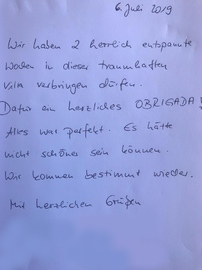 6. Juli 2019
Wir haben 2 herrlich entspannte
Wochen in dieser traumhaften
Villa verbringen dürfen.
Dafür ein herzliches OBRIGADA!
Alles war perfekt. Es hätte
nicht schöner sein können.
Wir kommen bestimmt wieder.
Mit herzlichen Grüßen